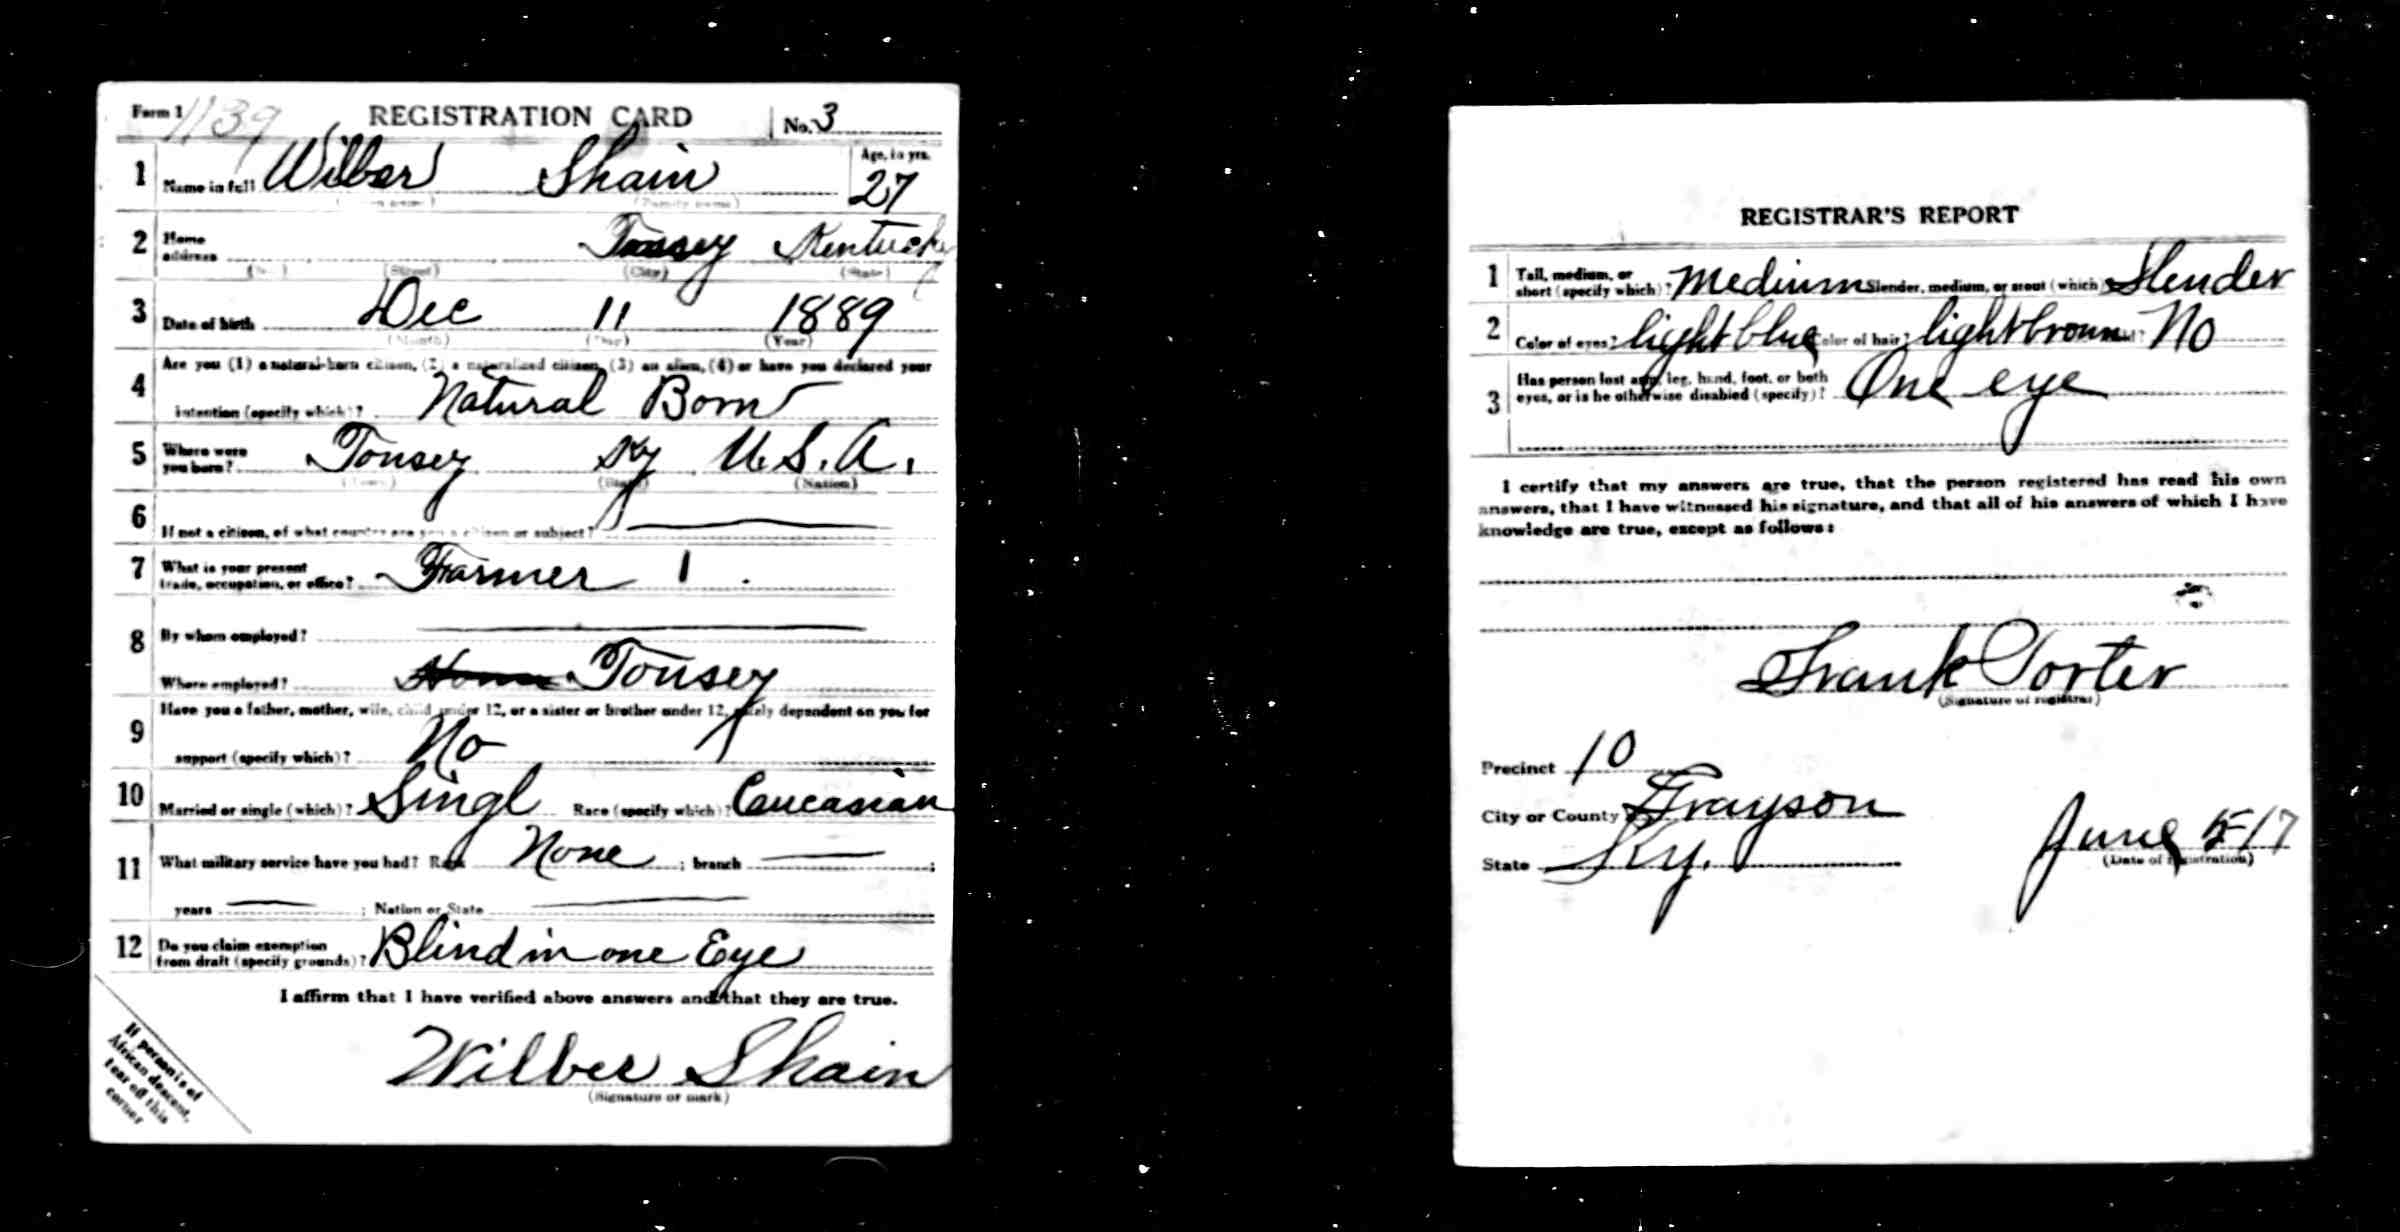 Form 1 1139 REGISTRATION CARD No. 3
1 Name in full Wilber Shain Age, in yrs. 27
(Family name)
2 Home address Tousey Kentucky
(Street) (City) (State)
3 Date of birth Dec 11 1889
(Month) (Day) (Year)
4 Are you (1) a natural-born citizen, (2) a naturalized citizen, (3) an alien, (4) or have you declared your
intention (specify which)? Natural Born
5 Where were you born? Tousey Ky U.S.A.
(Town) (State) (Nation)
6 If not a citizen, of what country are you a citizen or subject?
7 What is your present trade, occupation, or office? Farmer 1
8 By whom employed?
Where employed? Home Tousey
9 Have you a father, mother, wife, child under 12, or a sister or brother under 12, solely dependent on you for
support (specify which)? No
10 Married or single (which)? Singl Race (specify which)? Caucasian
11 What military service have you had? Rank None ; branch ;
years ; Nation or State
12 Do you claim exemption from draft (specify grounds)? Blind in one Eye
I affirm that I have verified above answers and that they are true.
Wilber Shain
(Signature or mark)
If person is of
African descent,
tear off this
corner
REGISTRAR'S REPORT
1 Tall, medium, or short (specify which)? Medium Slender, medium, or stout (which) Slender
2 Color of eyes? light blue Color of hair? light brown No
3 Has person lost arm, leg, hand, foot, or both eyes, or is he otherwise disabled (specify)? One eye
I certify that my answers are true, that the person registered has read his own
answers, that I have witnessed his signature, and that all of his answers of which I have
knowledge are true, except as follows:
Frank Porter
(Signature of registrar)
Precinct 10
City or County Grayson
State Ky. June 5-17
(Date of registration)